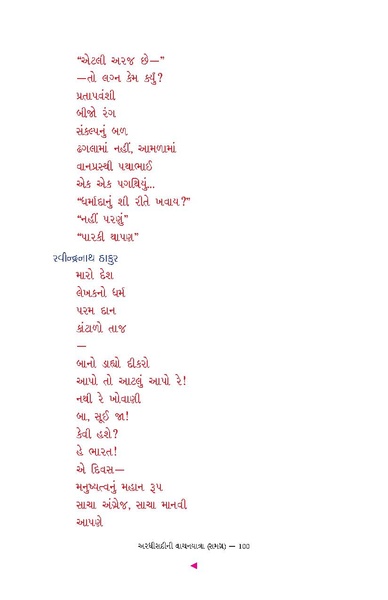 “એટલી અરજ છે—”
—તો લગ્ન કેમ કર્યું?
પ્રતાપવંશી
બીજો રંગ
સંકલ્પનું બળ
ઢગલામાં નહીં, આમળામાં
વાનપ્રસ્થી પથાભાઈ
એક એક પગથિયું...
“ધર્માદાનું શી રીતે ખવાય?”
“નહીં પરણું”
“પારકી થાપણ”
રવીન્દ્રનાથ ઠાકુર
મારો દેશ
લેખકનો ધર્મ
પરમ દાન
કાંટાળો તાજ
—
બાનો ડાહ્યો દીકરો
આપો તો આટલું આપો રે!
નથી રે ખોવાણી
બા, સૂઈ જા!
કેવી હશે?
હે ભારત!
એ દિવસ—
મનુષ્યત્વનું મહાન રૂપ
સાચા અંગ્રેજ, સાચા માનવી
આપણે
અરધીસદીની વાચનયાત્રા (સમગ્ર) — 100